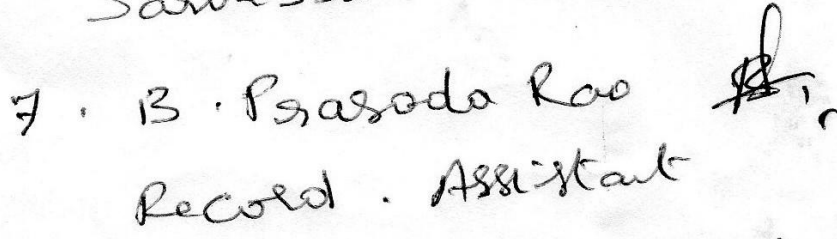 7. B. Prasada Rao
Record. Assistant